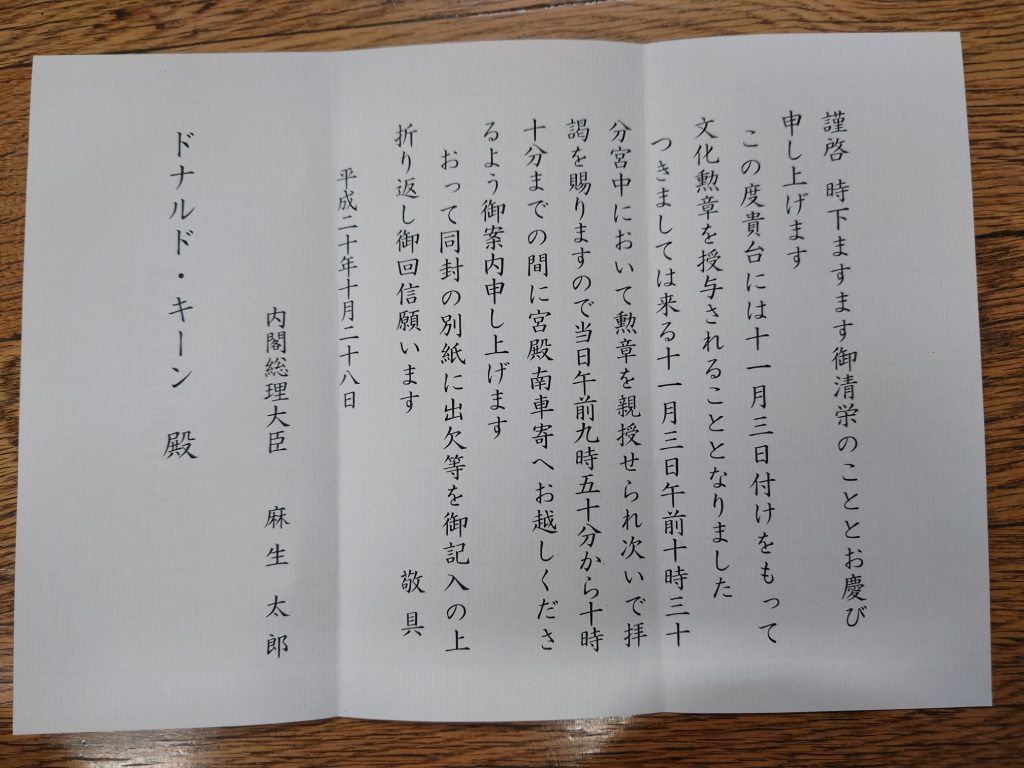 謹啓　時下ますます御清栄のこととお慶び
申し上げます
この度貴台には十一月三日付けをもって
文化勲章を授与されることとなりました
つきましては来る十一月三日午前十時三十
分宮中において勲章を親授せられ次いで拝
謁を賜りますので当日午前九時五十分から十時
十分までの間に宮殿南車寄へお越しくださ
るよう御案内申し上げます
おって同封の別紙に出欠等を御記入の上
折り返し御回信願います　敬具
平成二十年十月二十八日
内閣総理大臣　麻生　太郎
ドナルド・キーン　殿